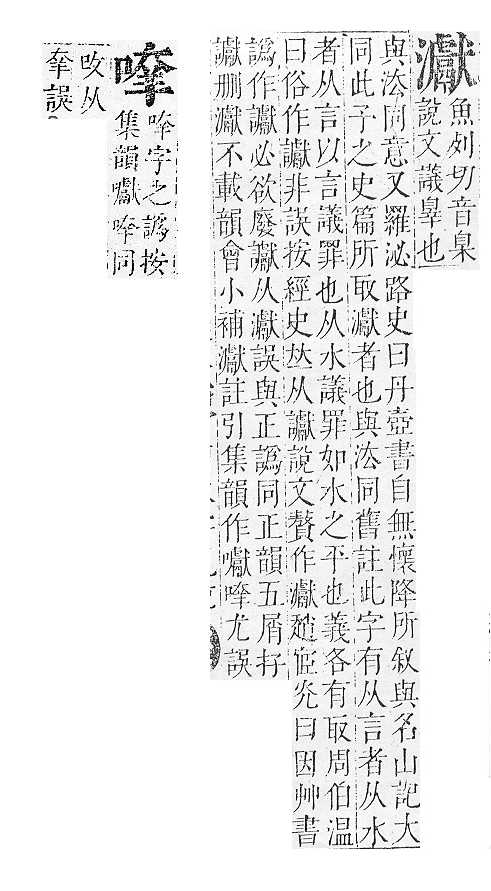 𤅊
魚列切音臬
說文議辠也
與法同意又羅泌路史曰丹壺書自無懷降所敘與名山記大
同此子之史篇所取𤅊者也與法同舊註此字有从言者从水
者从言以言議罪也从水議罪如水之平也義各有取周伯溫
曰俗作讞非誤按經史𠀤从讞說文贅作𤅊趙宧光曰因艸書
譌作讞必欲廢讞从𤅊誤與正譌同正韻五屑
讞刪𤅊不載韻會小補𤅊註引集韻作囐尤誤
字之譌按
集韻囐同
改从
誤